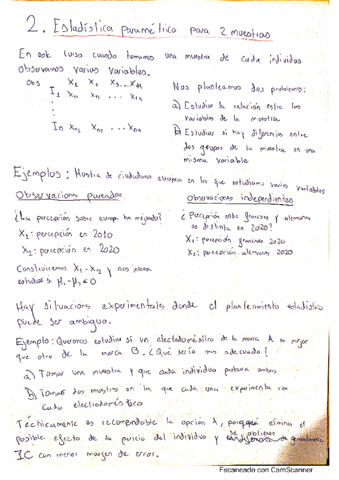 2. Estadística paramétrica para 2 muestras
En este curso cuando tomamos una muestra de cada individuo
observamos varias variables.
Obs X₁ X₂ X₃ ... Xₘ
I₁ X₁₁ X₁₂ ... X₁ₙ
In Xn₁ Xn₂ ... Xnₙ
Nos planteamos dos problemas:
a) Estudiar la relación entre las
variables de la muestra
b) Estudiar si hay diferencias entre
dos grupos de la muestra en una
misma variable
Ejemplos: Muestra de ciudadanos europeos en los que estudiamos varias variables
Observaciones pareadas
¿La percepción sobre europa ha mejorado?
X₁: percepción en 2010
X₂: percepción en 2020
Construiremos X₁-X₂ y nos
estudiar si μ₁-μ₂≤0
Observaciones independientes
¿Percepción entre franceses y alemanes
es distinta en 2020?
X₁: percepción franceses 2020
X₂: percepción alemanes 2020
Hay situaciones experimentales donde el planteamiento estadístico
puede ser ambiguo.
Ejemplo: Queremos estudiar si un electrodoméstico de la marca A es mejor
que otro de la marca B. ¿Qué sería más adecuado?
a) Tomar una muestra y que cada individuo probara ambos
b) Tomar dos muestras en la que cada una experimenta con
cada electrodoméstico
Técnicamente es recomendable la opción A, porque elimina el
posible efecto de la pericia del individuo y se obtienen generalmente
IC con menor margen de error.
Escaneado con CamScanner